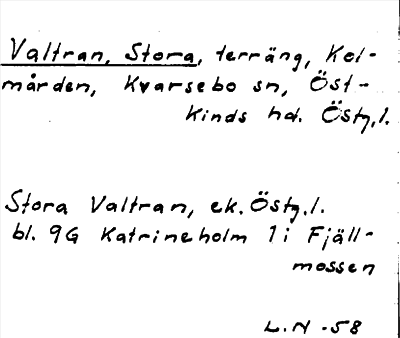 Valtran, Stora, terräng, Kol-
mården, Kvarsebo sn, Öst-
kinds hd. Östg.l.
Stora Valtran, ek. Östg.l.
bl. 9G Katrineholm 1i Fjäll-
mossen
L.N -58